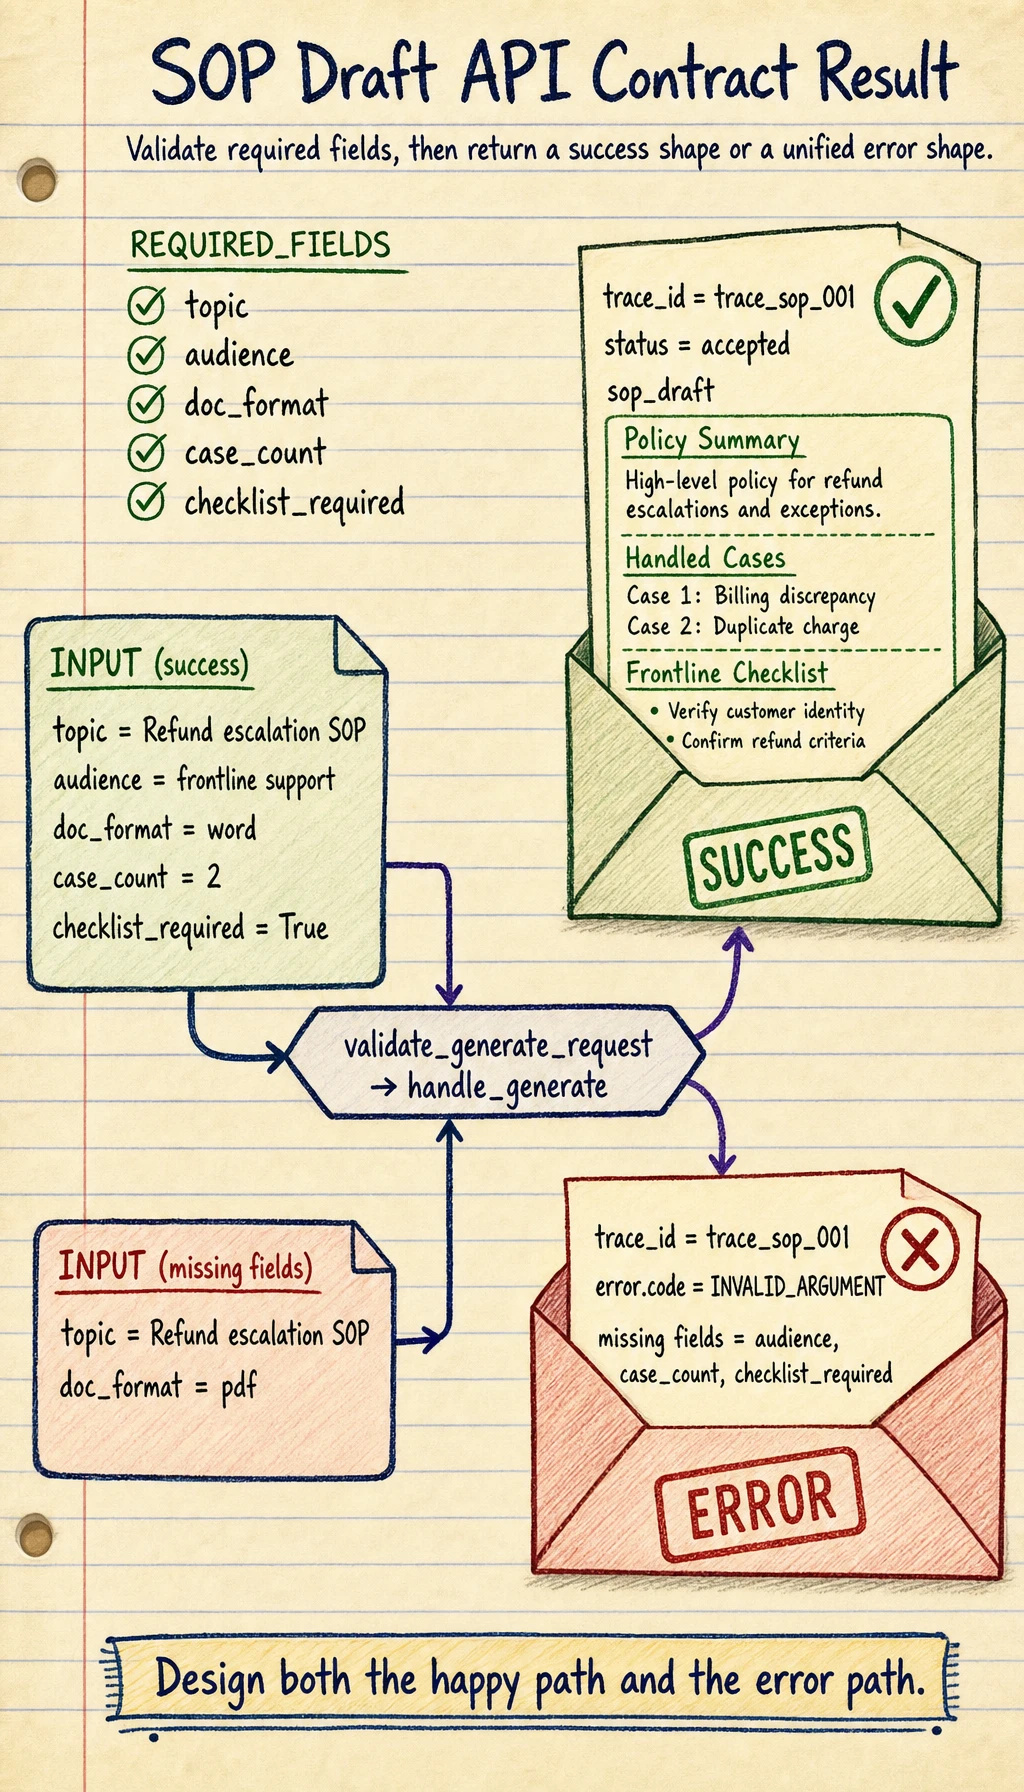 SOP Draft API Contract Result
Validate required fields, then return a success shape or a unified error shape.
REQUIRED_FIELDS
topic
audience
doc_format
case_count
checklist_required
trace_id = trace_sop_001
status = accepted
sop_draft
Policy Summary
High-level policy for refund
escalations and exceptions.
Handled Cases
Case 1: Billing discrepancy
Case 2: Duplicate charge
Frontline Checklist
• Verify customer identity
• Confirm refund criteria
SUCCESS
INPUT (success)
topic = Refund escalation SOP
audience = frontline support
doc_format = word
case_count = 2
checklist_required = True
validate_generate_request
→ handle_generate
INPUT (missing fields)
topic = Refund escalation SOP
doc_format = pdf
trace_id = trace_sop_001
error.code = INVALID_ARGUMENT
missing fields = audience,
case_count, checklist_required
ERROR
Design both the happy path and the error path.